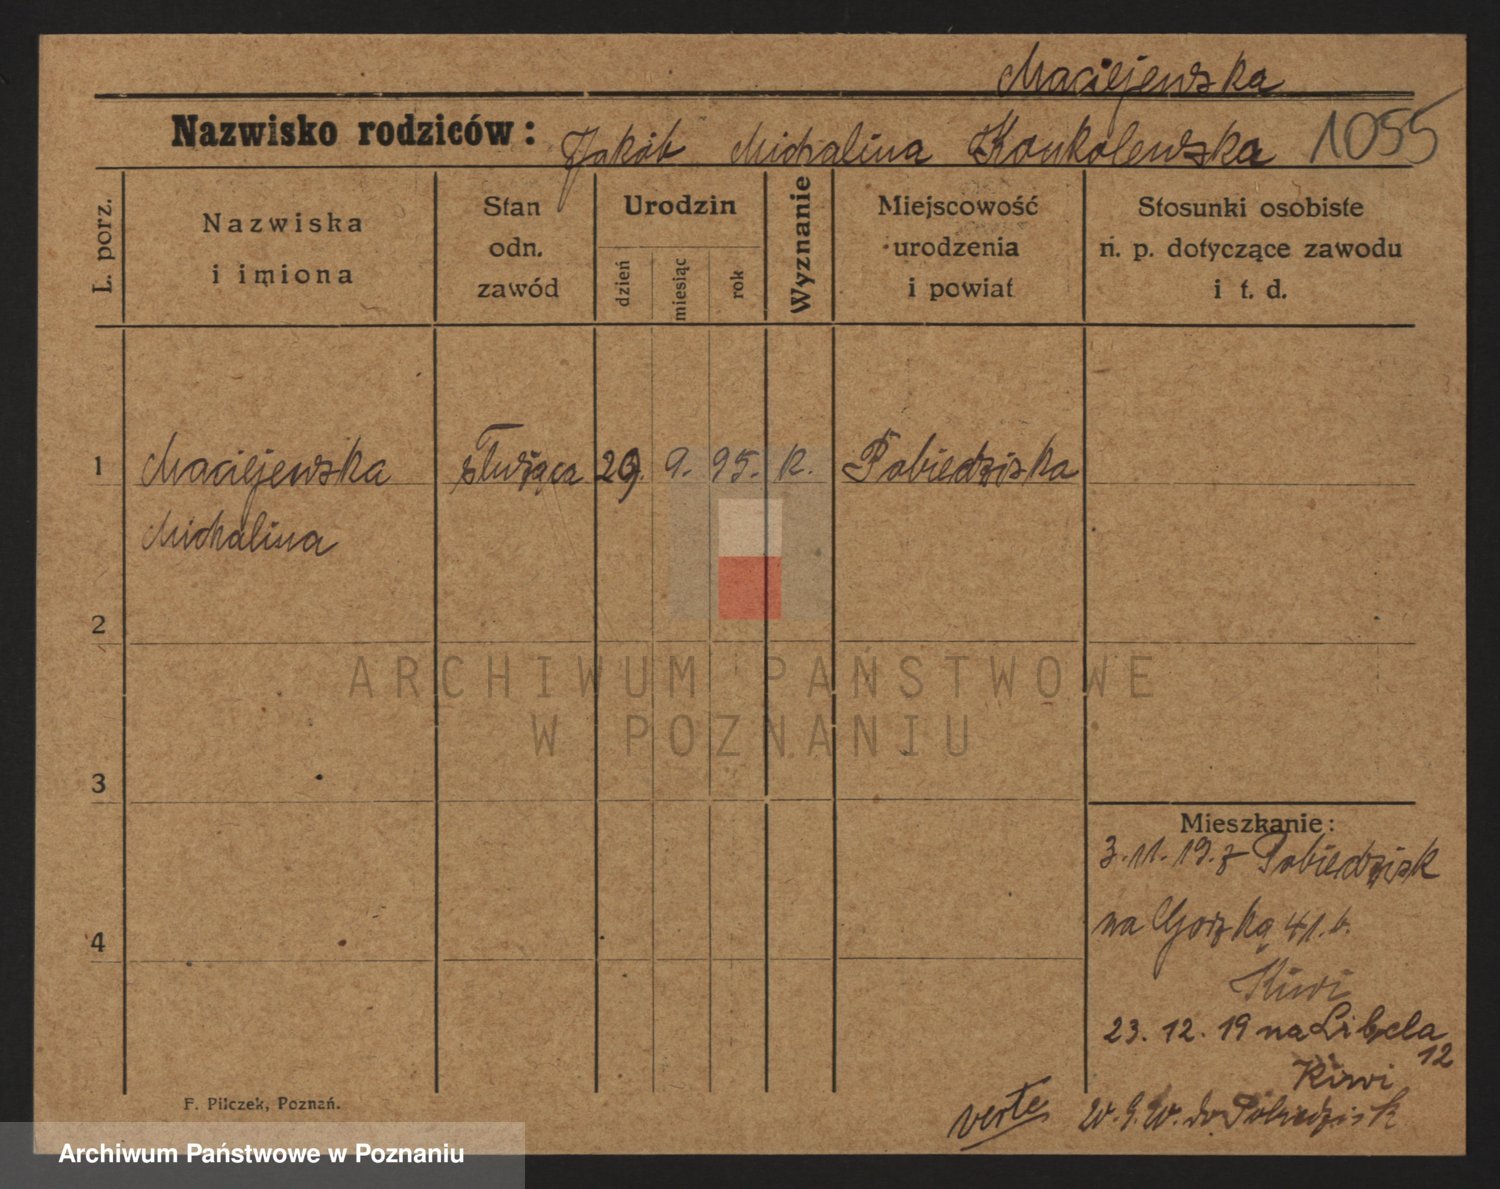 Maciejewska
Nazwisko rodziców: Jakób Michalina Konkolewska 1055
L. porz.
Nazwiska
i imiona
Stan
odn.
zawód
Urodzin
dzień
miesiąc
rok
Wyznanie
Miejscowość
urodzenia
i powiat
Stosunki osobiste
n. p. dotyczące zawodu
i t. d.
1 Maciejewska służąca 29. 9. 95. K. Pobiedziska
Michalina
2
ARCHIWUM PAŃSTWOWE
W POZNANIU
3
Mieszkanie:
3.11.19. z Pobiedzisk
na Górską 41.
4
Kiwi
23. 12. 19 na Libelta
12
Kiwi
verte
do Pobiedzisk
F. Pilczek, Poznań.
Archiwum Państwowe w Poznaniu